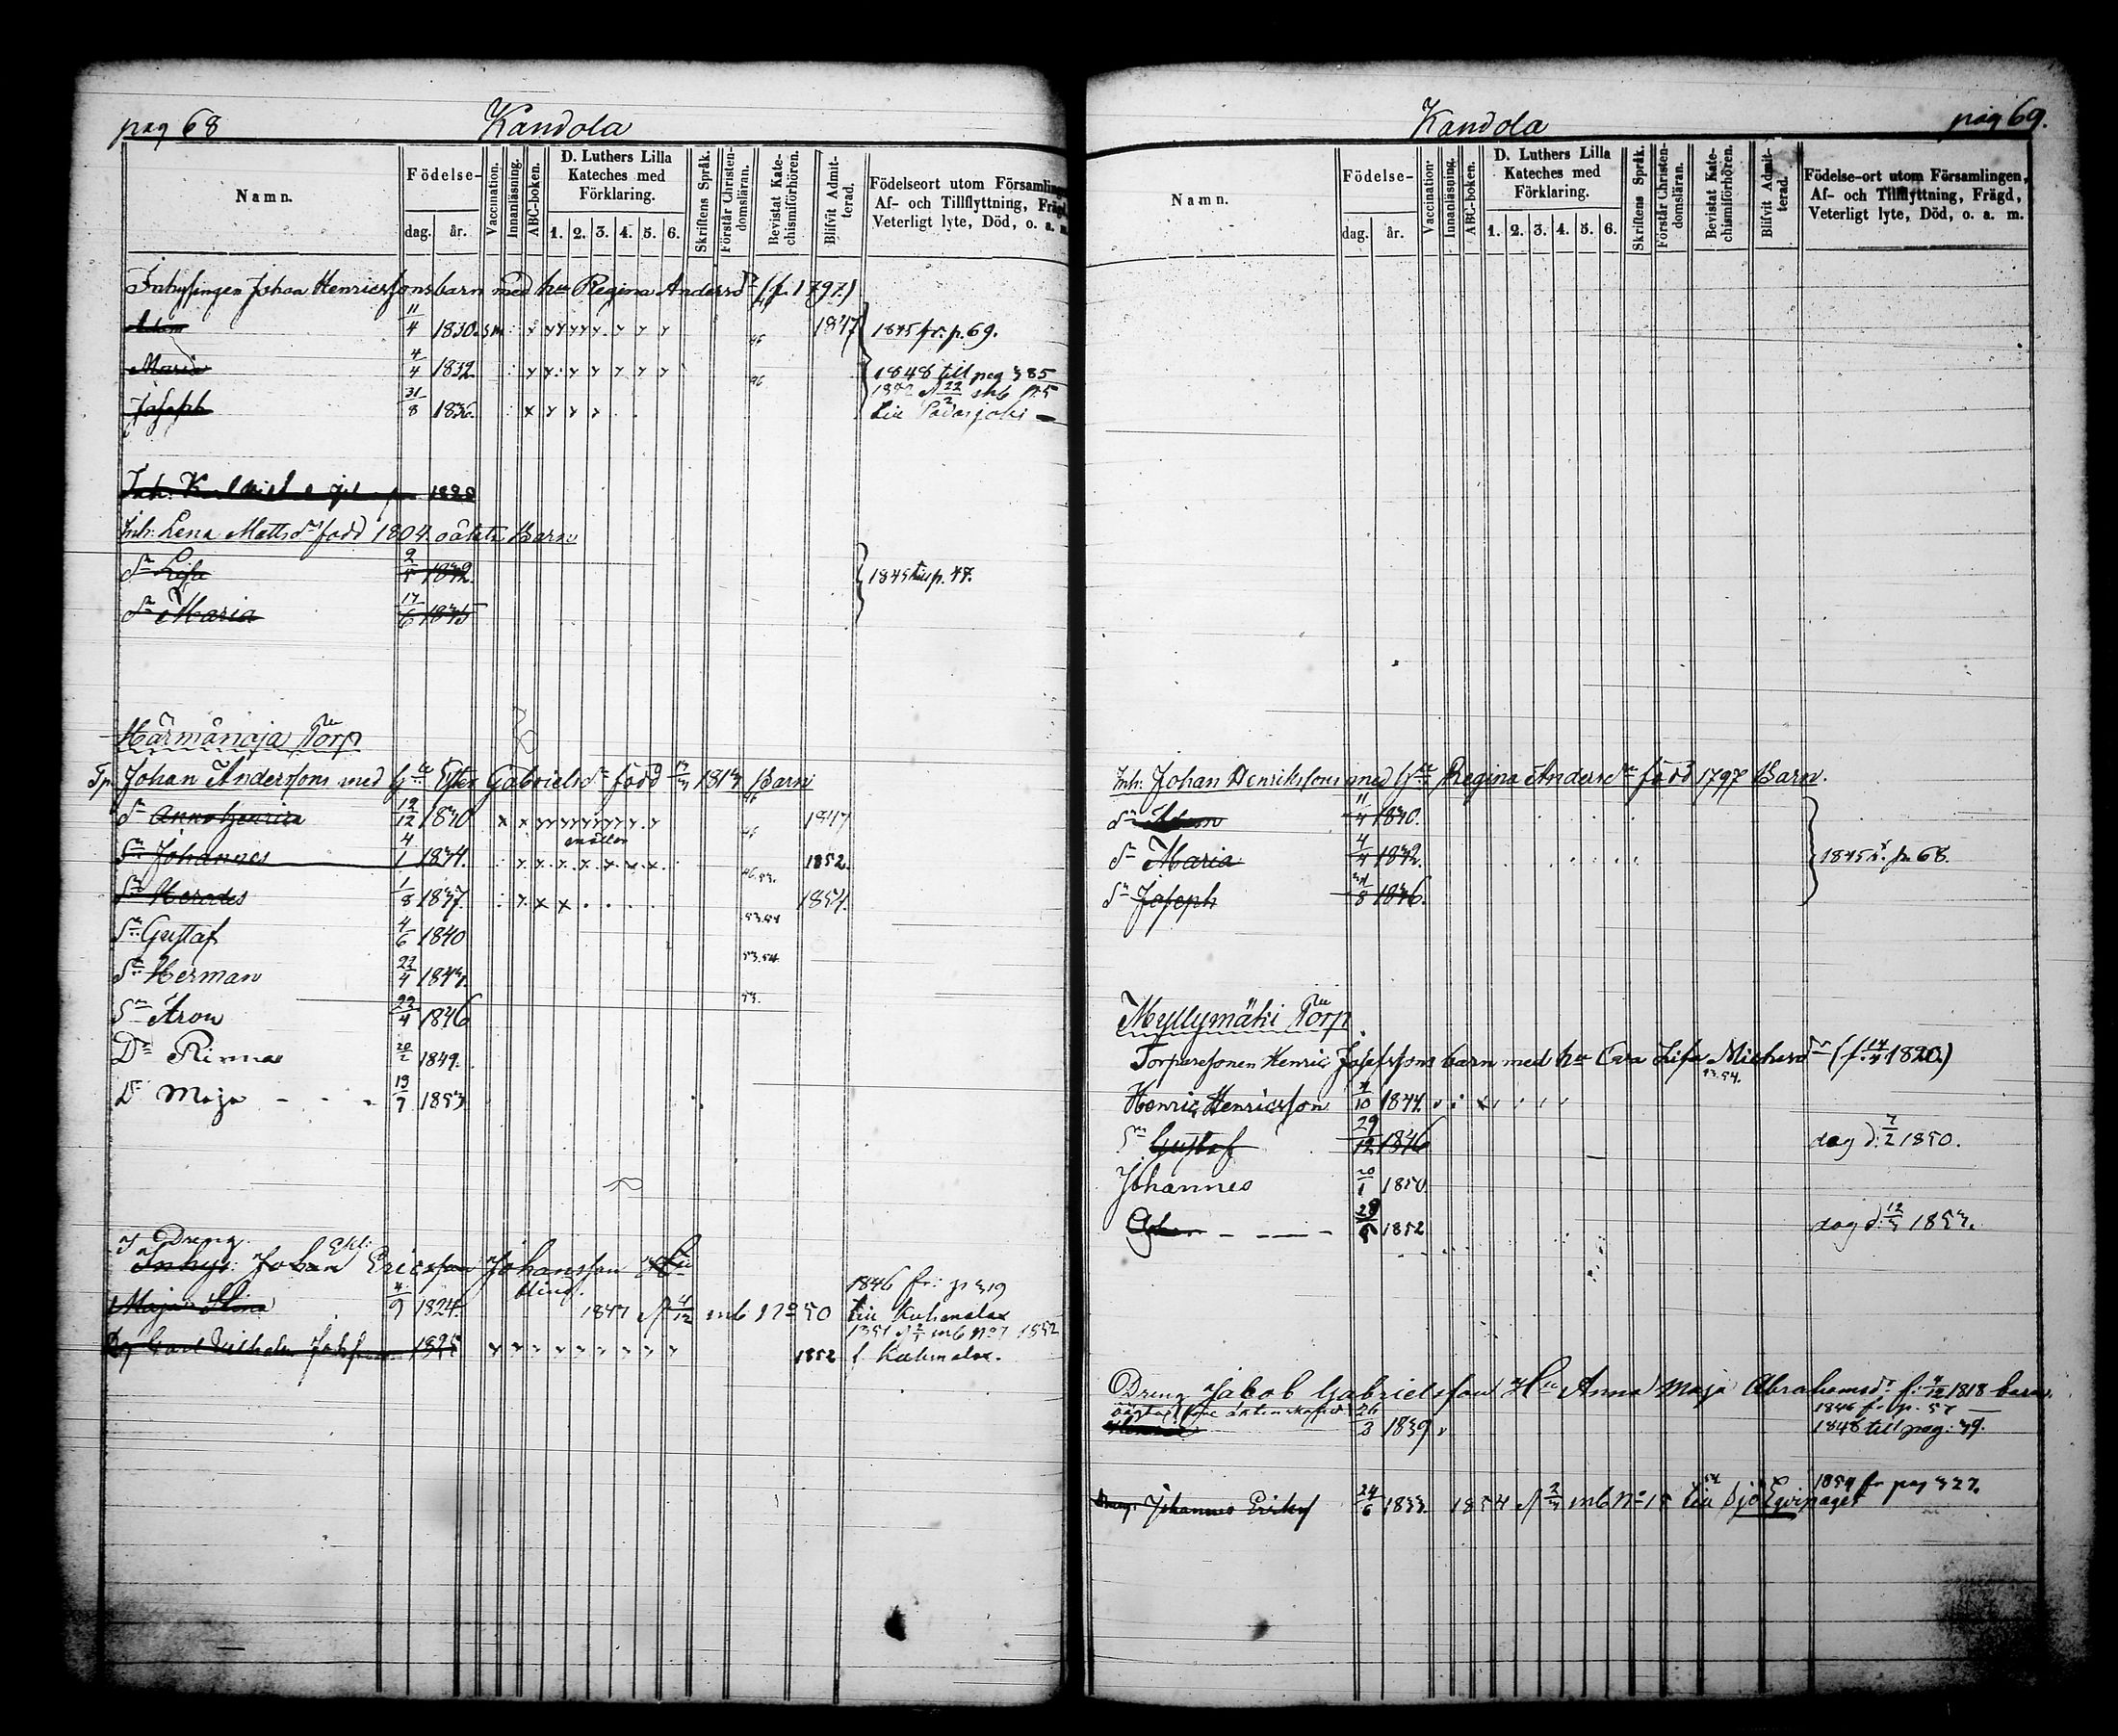 pag 68 Kandola
Namn. Födelse- dag. år. Vaccination. Innanläsning. ABC-boken. D. Luthers Lilla Kateches med Förklaring. 1. 2. 3. 4. 5. 6. Skriftens Språk. Förstår Christendomsläran. Bevistat Katechismiförhören. Blifvit Admitterad. Födelseort utom Församlingen Af- och Tillflyttning, Frägd, Veterligt lyte, Död, o. a. m.
Inhysingen Johan Henricssons barn med hu Regina Andersdr (f. 1797.)
Adam 11/4 1830. 1847 1845 fr: p. 69.
Maria 4/4 1832 1848 till pag 385
Joseph 31/8 1836.
Inh: 1828
Inh: Lena Mattsdr född 1804. oäkta Barn
Dr Lisa 1832 1845 till p. 47.
Dr Maria 17/6 1835
Härmänoja Torp
Tp. Johan Anderssons med Hu Ester Gabrielsdr född 1813 Barn
Dr Anna Henrica 12/12 1830 1847
Sn Johannes 4/1 1834. 1852
Sn Herodes 1/8 1837. 1854.
Sn Gustaf 4/6 1840 53.54
Sn Herman 22/4 1843. 53.54
Sn Aron 22/4 1846 53.
Dr Pinna 20/2 1849.
Dr Maja - - - 19/7 1853
Dreng.
Inhys: Johan Ericsson Johansson
blind. 1846 fr: p 319
Maja Stina 4/9 1824. 1847 4/12 mb No 50 till Kuhmalax
1851 mb No 7 1852
Dg Carl Vilhelm 1825 1852 f. Kuhmalax.
Kandola pag 69.
Namn. Födelse- dag. år. Vaccination. Innanläsning. ABC-boken. D. Luthers Lilla Kateches med Förklaring. 1. 2. 3. 4. 5. 6. Skriftens Språk. Förstår Christendomsläran. Bevistat Katechismiförhören. Blifvit Admitterad. Födelse-ort utom Församlingen, Af- och Tillflyttning, Frägd, Veterligt lyte, Död, o. a. m.
Inh: Johan Henrikssons med Hu Regina Andersdr född 1797 Barn.
Sn Adam 11/4 1830.
Dr Maria 4/4 1832. 1845 p. 68.
Sn Joseph 31/8 1836.
Myllymäki Torp
Torparesonen Henric Josefssons barn med hu Eva Lisa Michelsdr (f. 1820.)
Henric Henricsson 4/10 1844.
Sn Gustaf 29/12 1846 dog d. 7/2 1850.
Johannes 20/1 1850
28 1852 dog d: 12/3 1853.
Dreng Jakob Gabrielsson Hu Anna Maja Abrahamsdr f: 4/12 1818 barn.
1846 fr. p. 57
26/3 1839 1848 till pag: 39.
1854 fr pag 327.
Dreng. Johannes Eriks 24/6 1833. 1854 mb No 15 till Sjö Eqvipaget